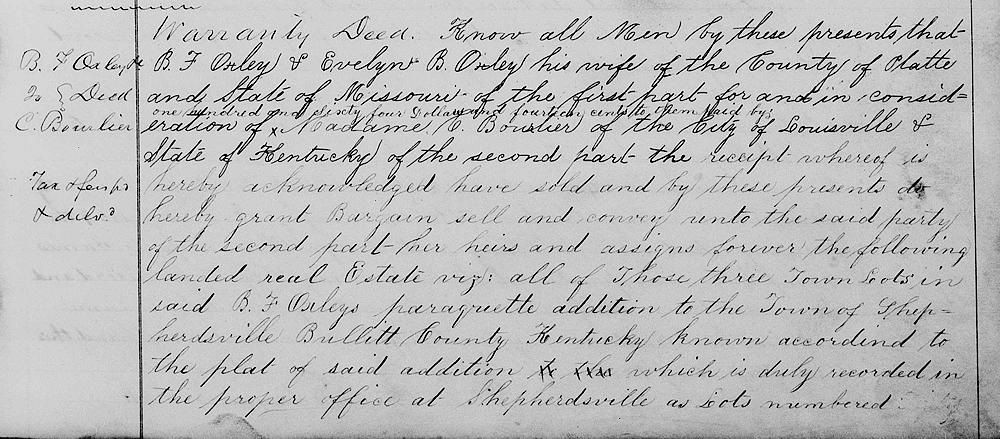 Warranty Deed. Know all Men by these presents that
B. F Oxley & Evelyn B. Oxley his wife of the County of Platte
and State of Missouri of the first part for and in consid=
one hundred and sixty four Dollars and fourteen cents to them paid by
eration of x Madame C. Bourlier of the City of Louisville &
State of Kentucky of the second part the receipt whereof is
hereby acknowledged have sold and by these presents do
hereby grant Bargain sell and convey unto the said party
of the second part her heirs and assigns forever the following
landed real Estate viz: all of Those three Town Lots in
said B. F Oxleys paraquette addition to the Town of Shep=
herdsville Bullitt County Kentucky known accordind to
the plat of said addition which is duly recorded in
the proper office at Shepherdsville as Lots numbered:
B. F Oxley
To } Deed
C. Bourlier
Tax &
& delvd